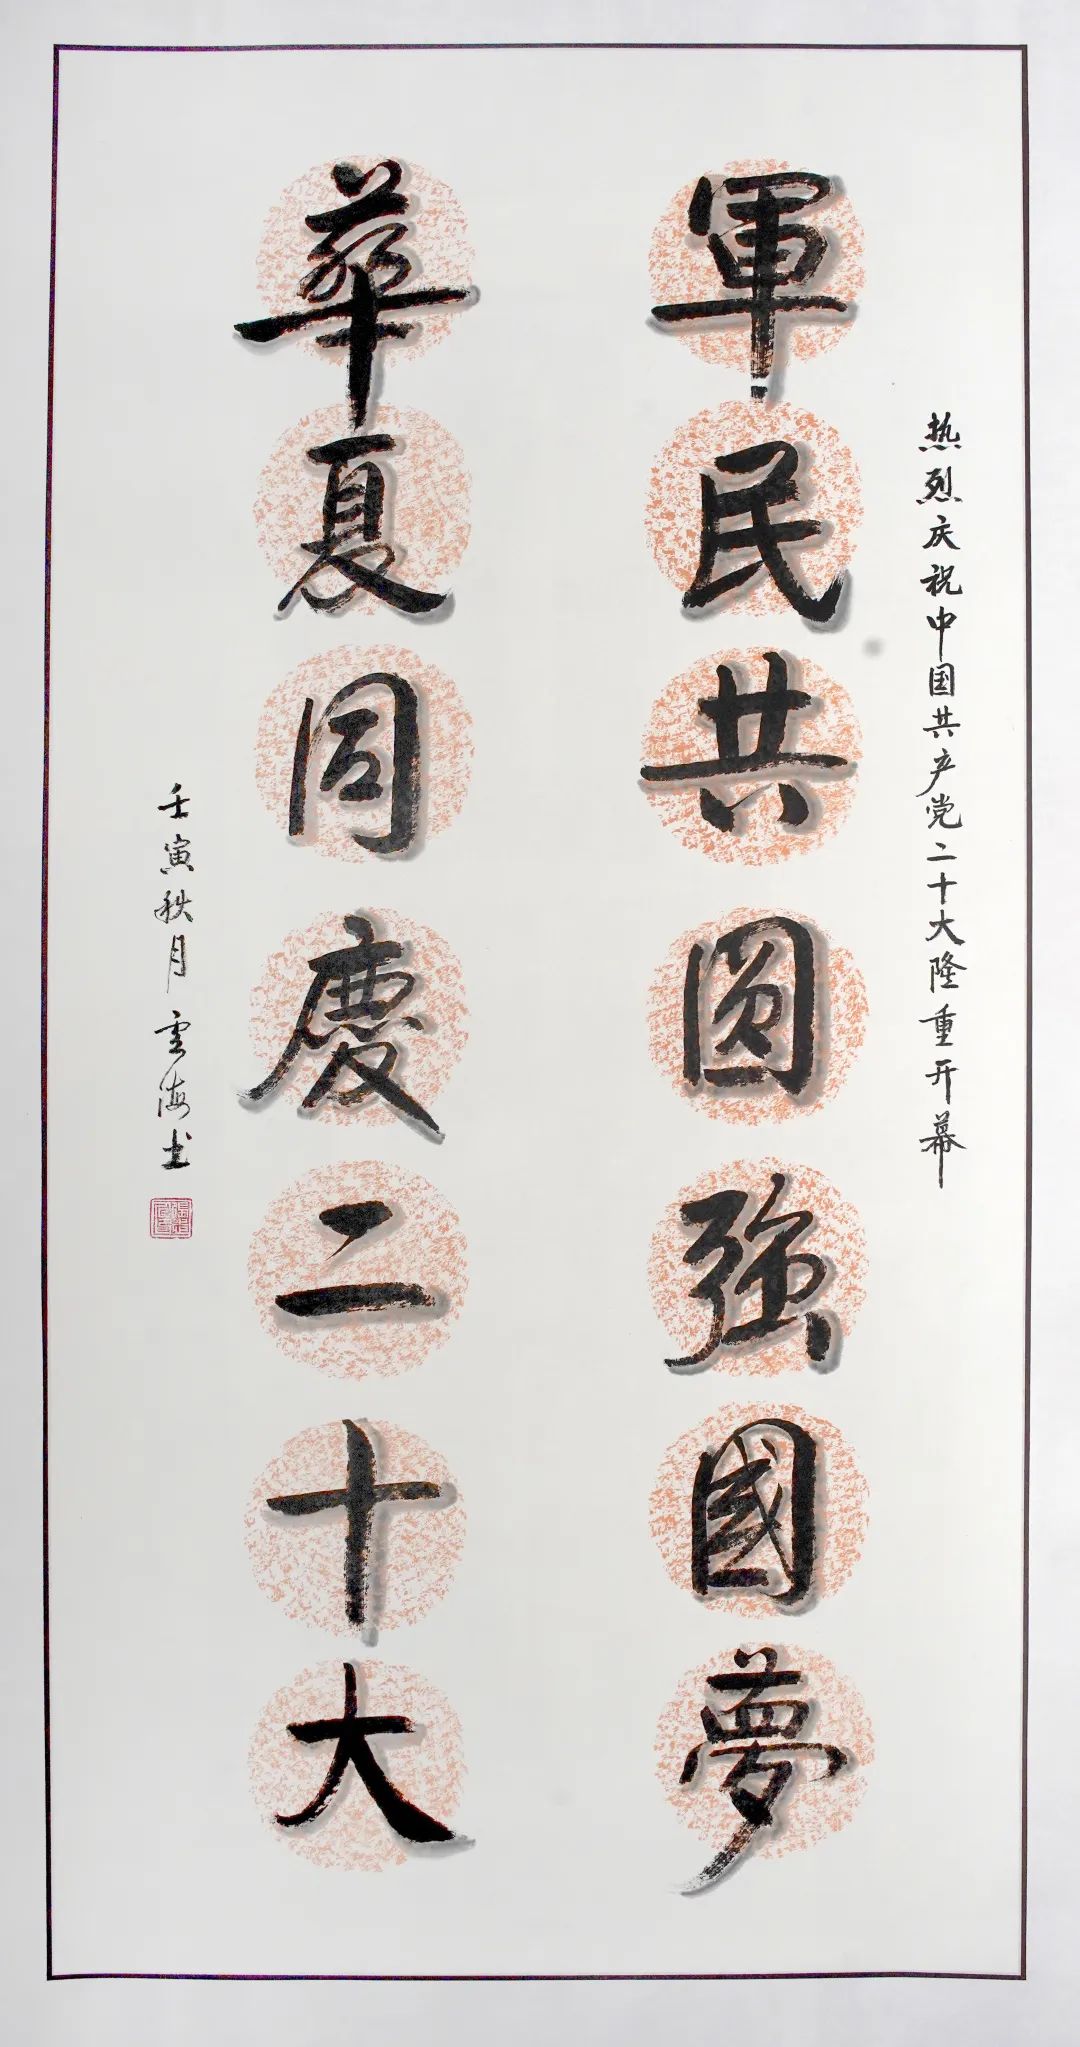 热烈庆祝中国共产党二十大隆重开幕
軍民共圆强國夢
華夏同慶二十大
壬寅秩月雲海书